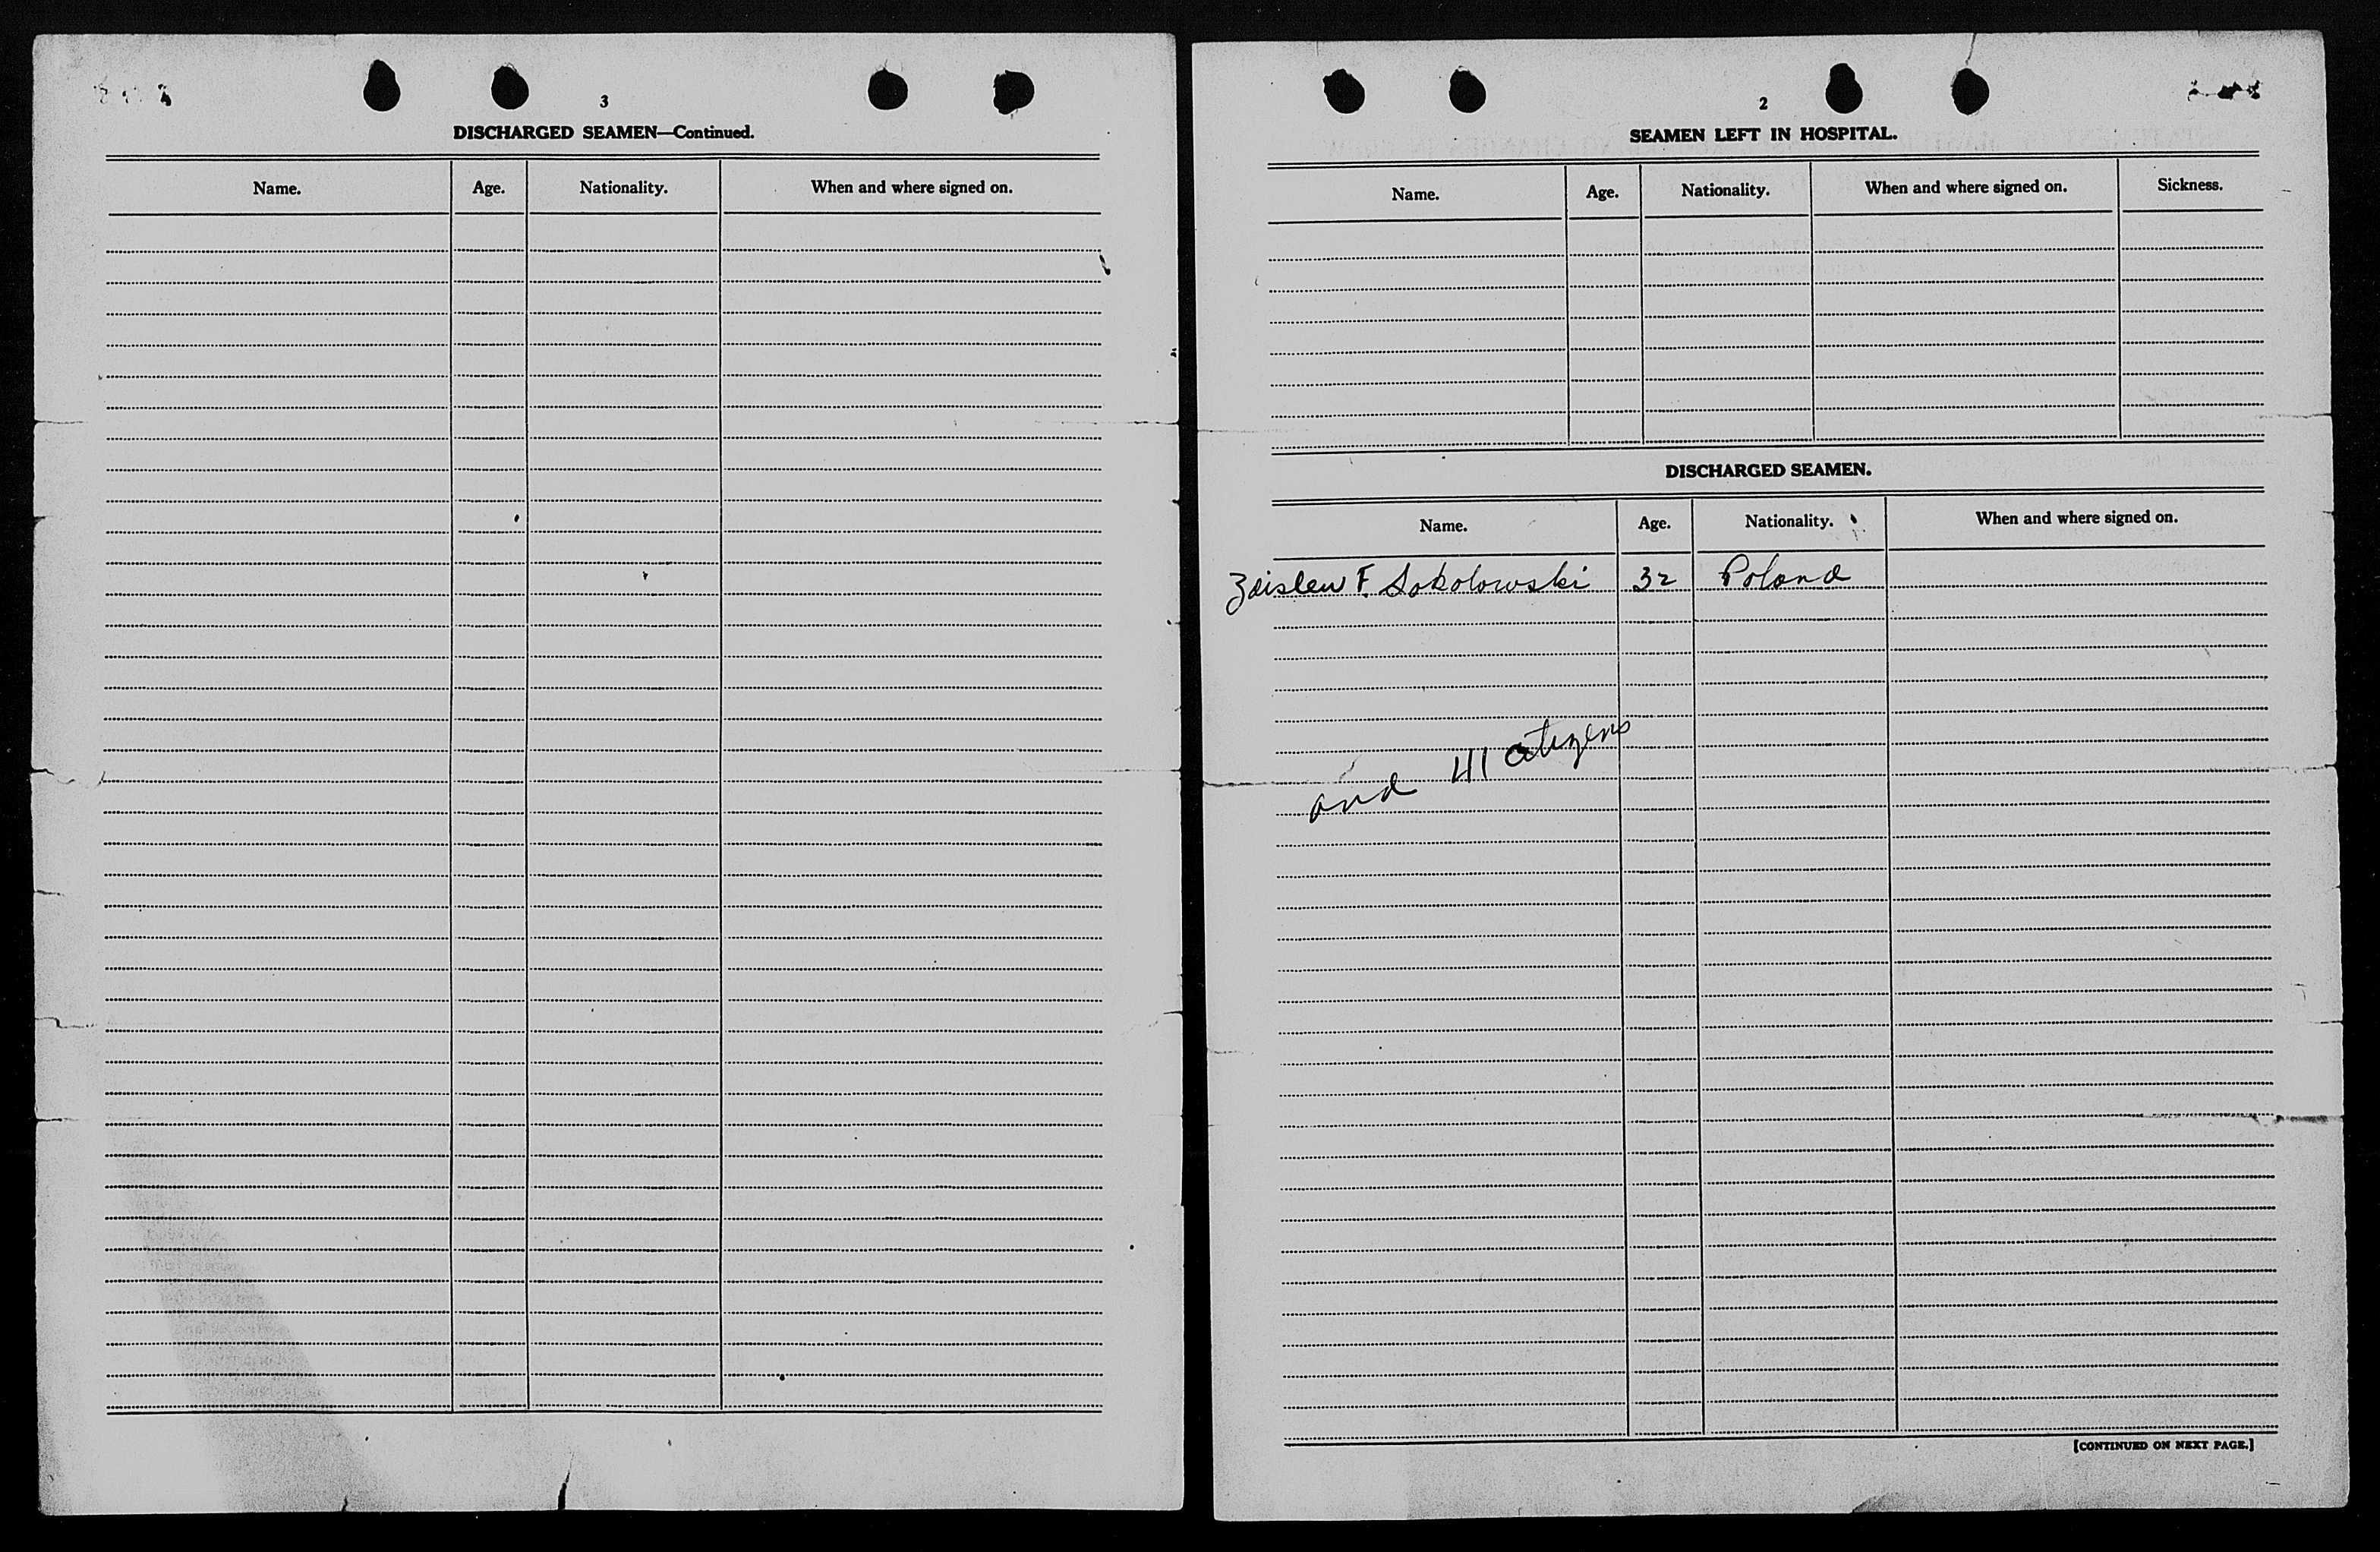 3
DISCHARGED SEAMEN—Continued.
Name. Age. Nationality. When and where signed on.
2
SEAMEN LEFT IN HOSPITAL.
Name. Age. Nationality. When and where signed on. Sickness.
DISCHARGED SEAMEN.
Name. Age. Nationality. When and where signed on.
Zdislew F. Sokolowski 32 Poland
and 41 citizens
[CONTINUED ON NEXT PAGE.]